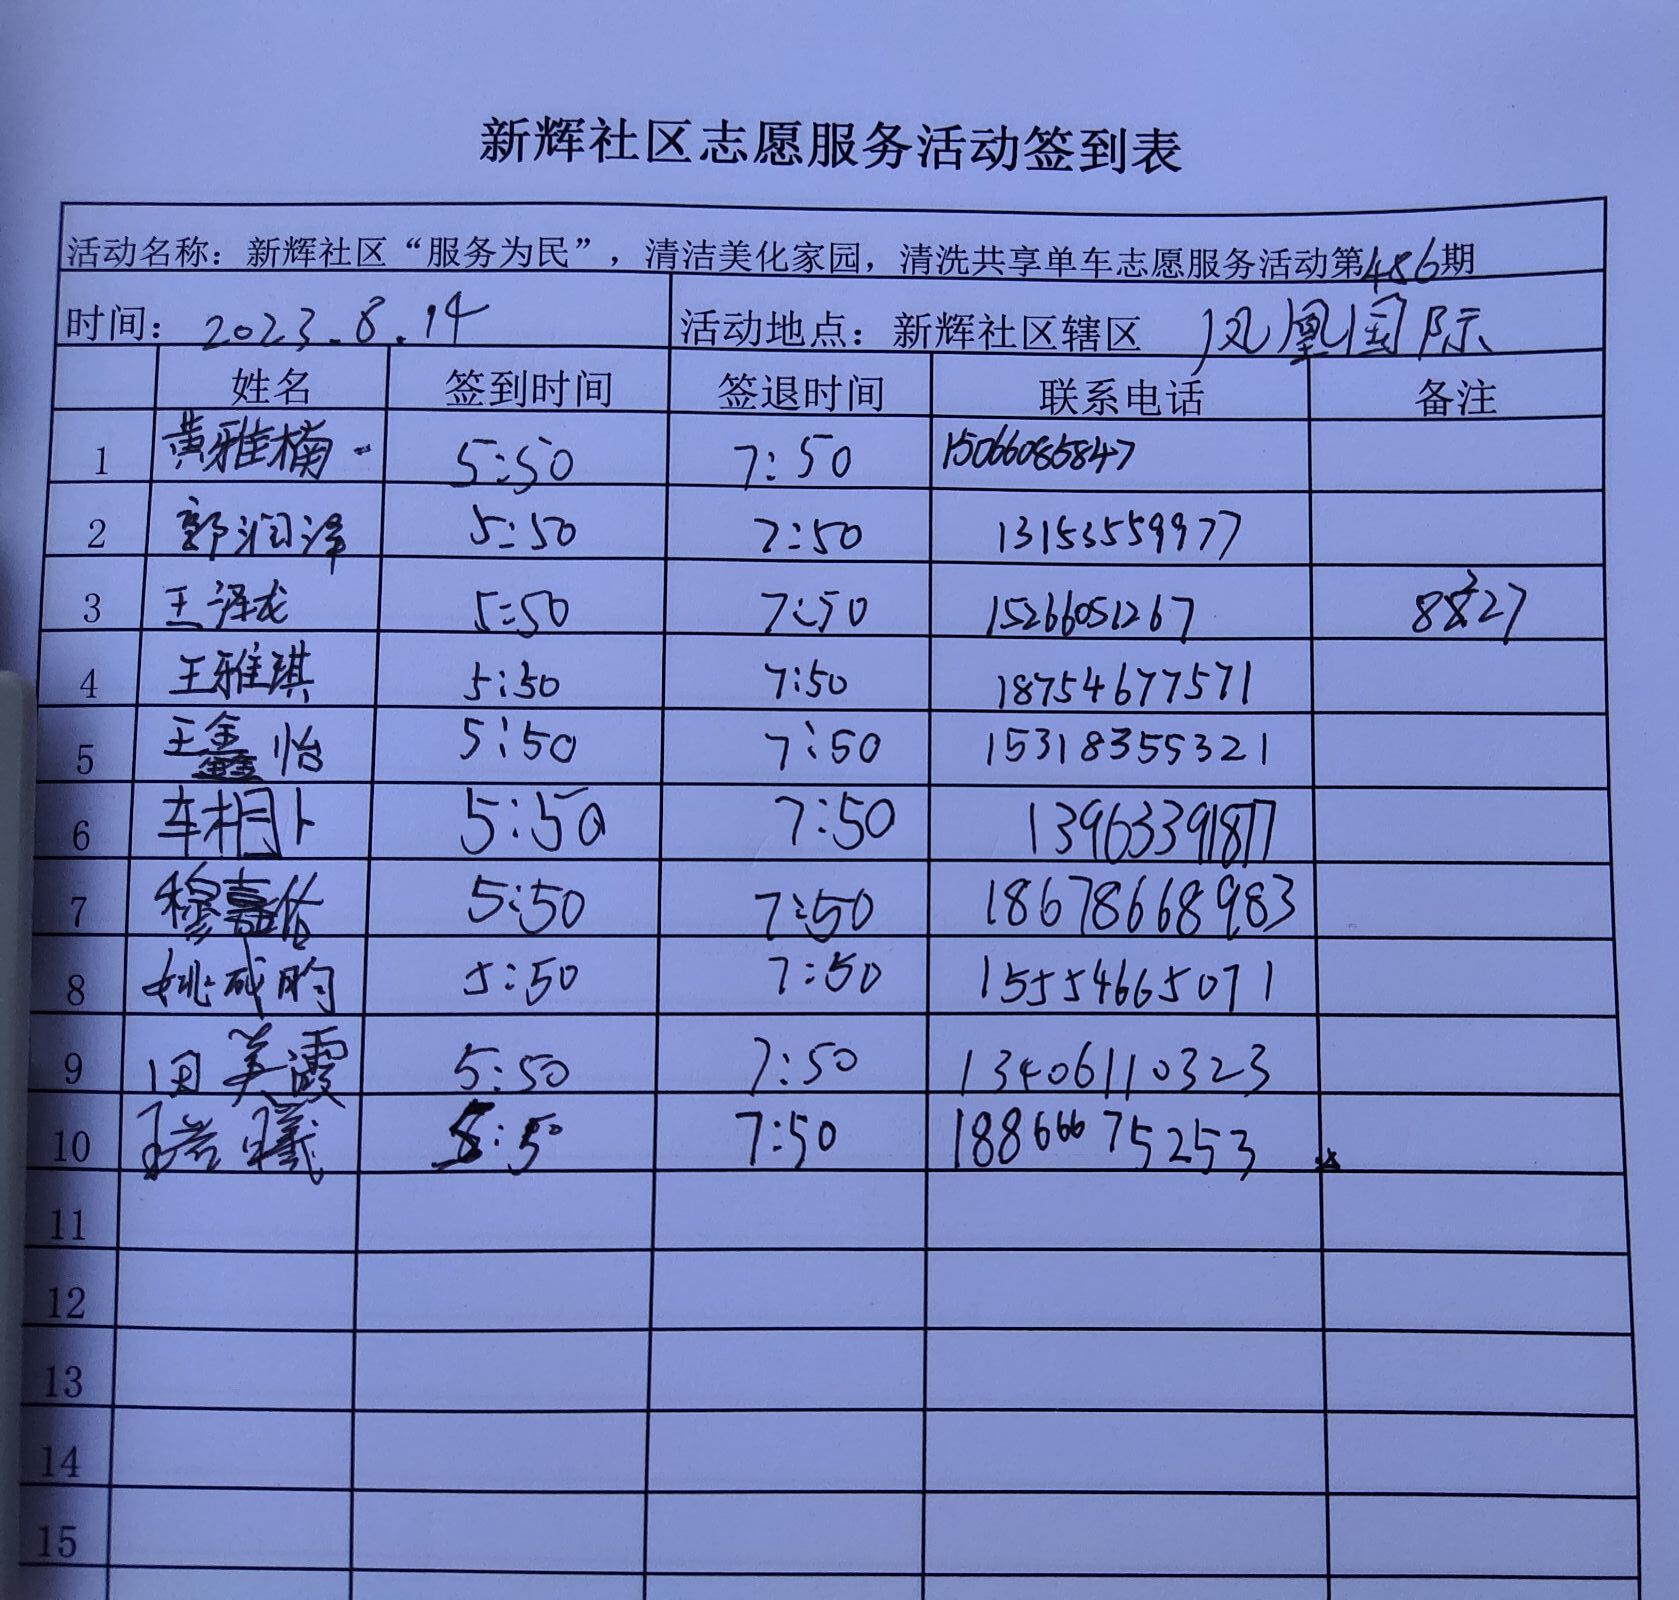 新辉社区志愿服务活动签到表
活动名称：新辉社区“服务为民”，清洁美化家园，清洗共享单车志愿服务活动第486期
时间：2023.8.14 活动地点：新辉社区辖区 凤凰国际
姓名 签到时间 签退时间 联系电话 备注
1 黄雅楠 5:50 7:50 15066085847
2 郭润泽 5:50 7:50 13153559977
3 王泽龙 5:50 7:50 15266051267
4 王雅琪 5:50 7:50 18754677571
5 王鑫怡 5:50 7:50 15318355321
6 车相卜 5:50 7:50 13963391877
7 穆嘉 5:50 7:50 18678668983
8 姚成昀 5:50 7:50 15554665071
9 田美霞 5:50 7:50 13406110323
10 曦 5:50 7:50 18866675253
11
12
13
14
15